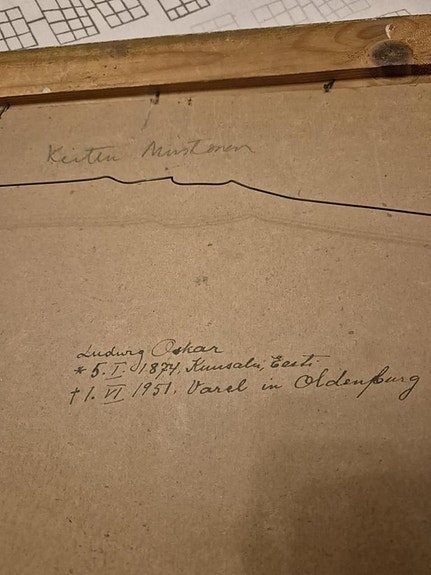 Ludwig Oskar
* 5. I. 1874, Kuusalu, Eesti
† 1. VI 1951. Varel in Oldenburg